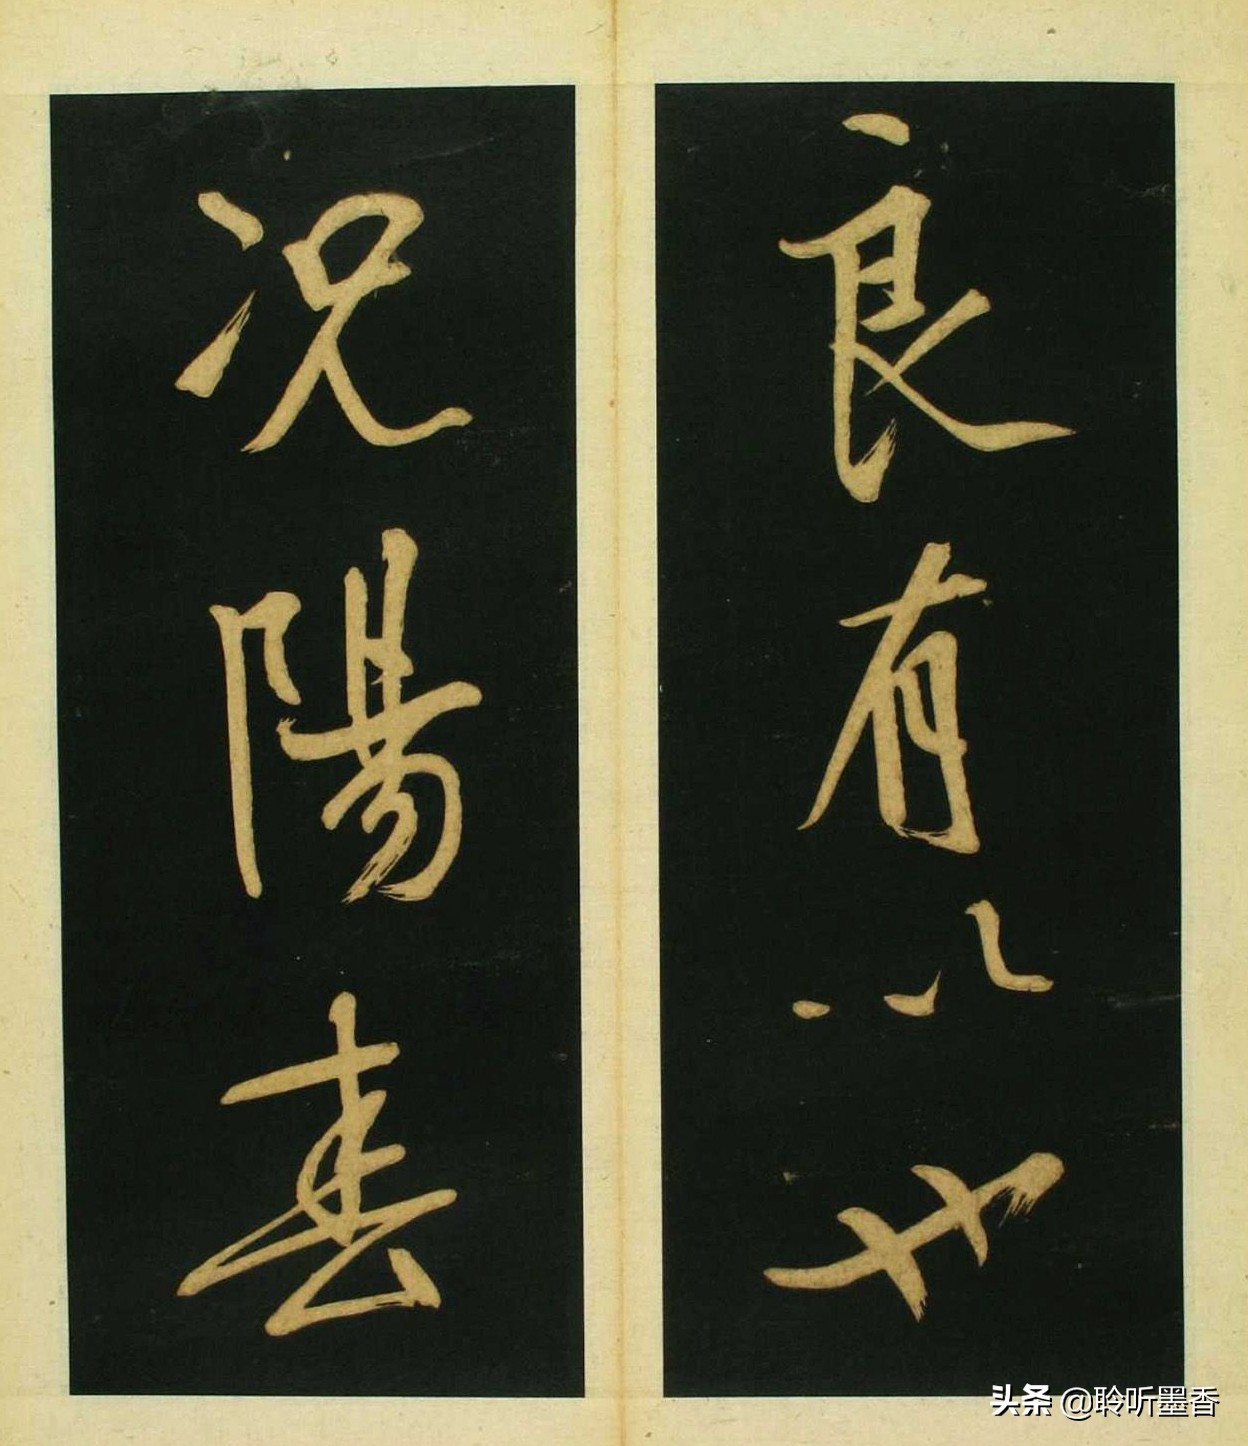 良有以也
况陽春
头条 @聆听墨香